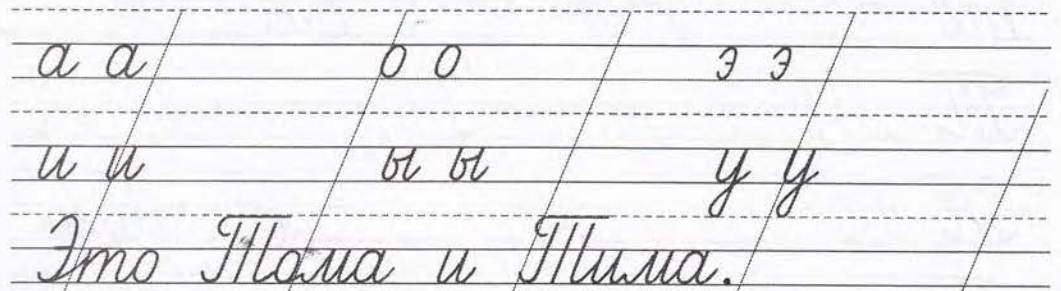 а а о о э э
и и ы ы у у
Это Тома и Тима.